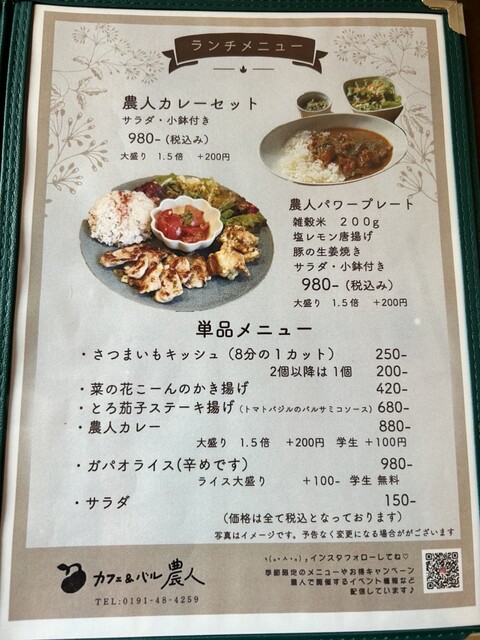 ランチメニュー
農人カレーセット
サラダ・小鉢付き
980-(税込み)
大盛り 1.5倍 +200円
農人パワープレート
雑穀米 200g
塩レモン唐揚げ
豚の生姜焼き
サラダ・小鉢付き
980-(税込み)
大盛り 1.5倍 +200円
単品メニュー
・さつまいもキッシュ(8分の1カット) 250-
2個以降は1個 200-
・菜の花こーんのかき揚げ 420-
・とろ茄子ステーキ揚げ(トマトバジルのバルサミコソース) 680-
・農人カレー 880-
大盛り 1.5倍 +200円 学生 +100円
・ガパオライス(辛めです) 980-
ライス大盛り +100- 学生 無料
・サラダ 150-
(価格は全て税込となっております)
写真はイメージです。予告なく変更になる場合がございます
インスタフォローしてね♡
季節限定のメニューやお得キャンペーン
農人で開催するイベント情報など
配信しています♪
カフェ&バル 農人
TEL:0191-48-4259